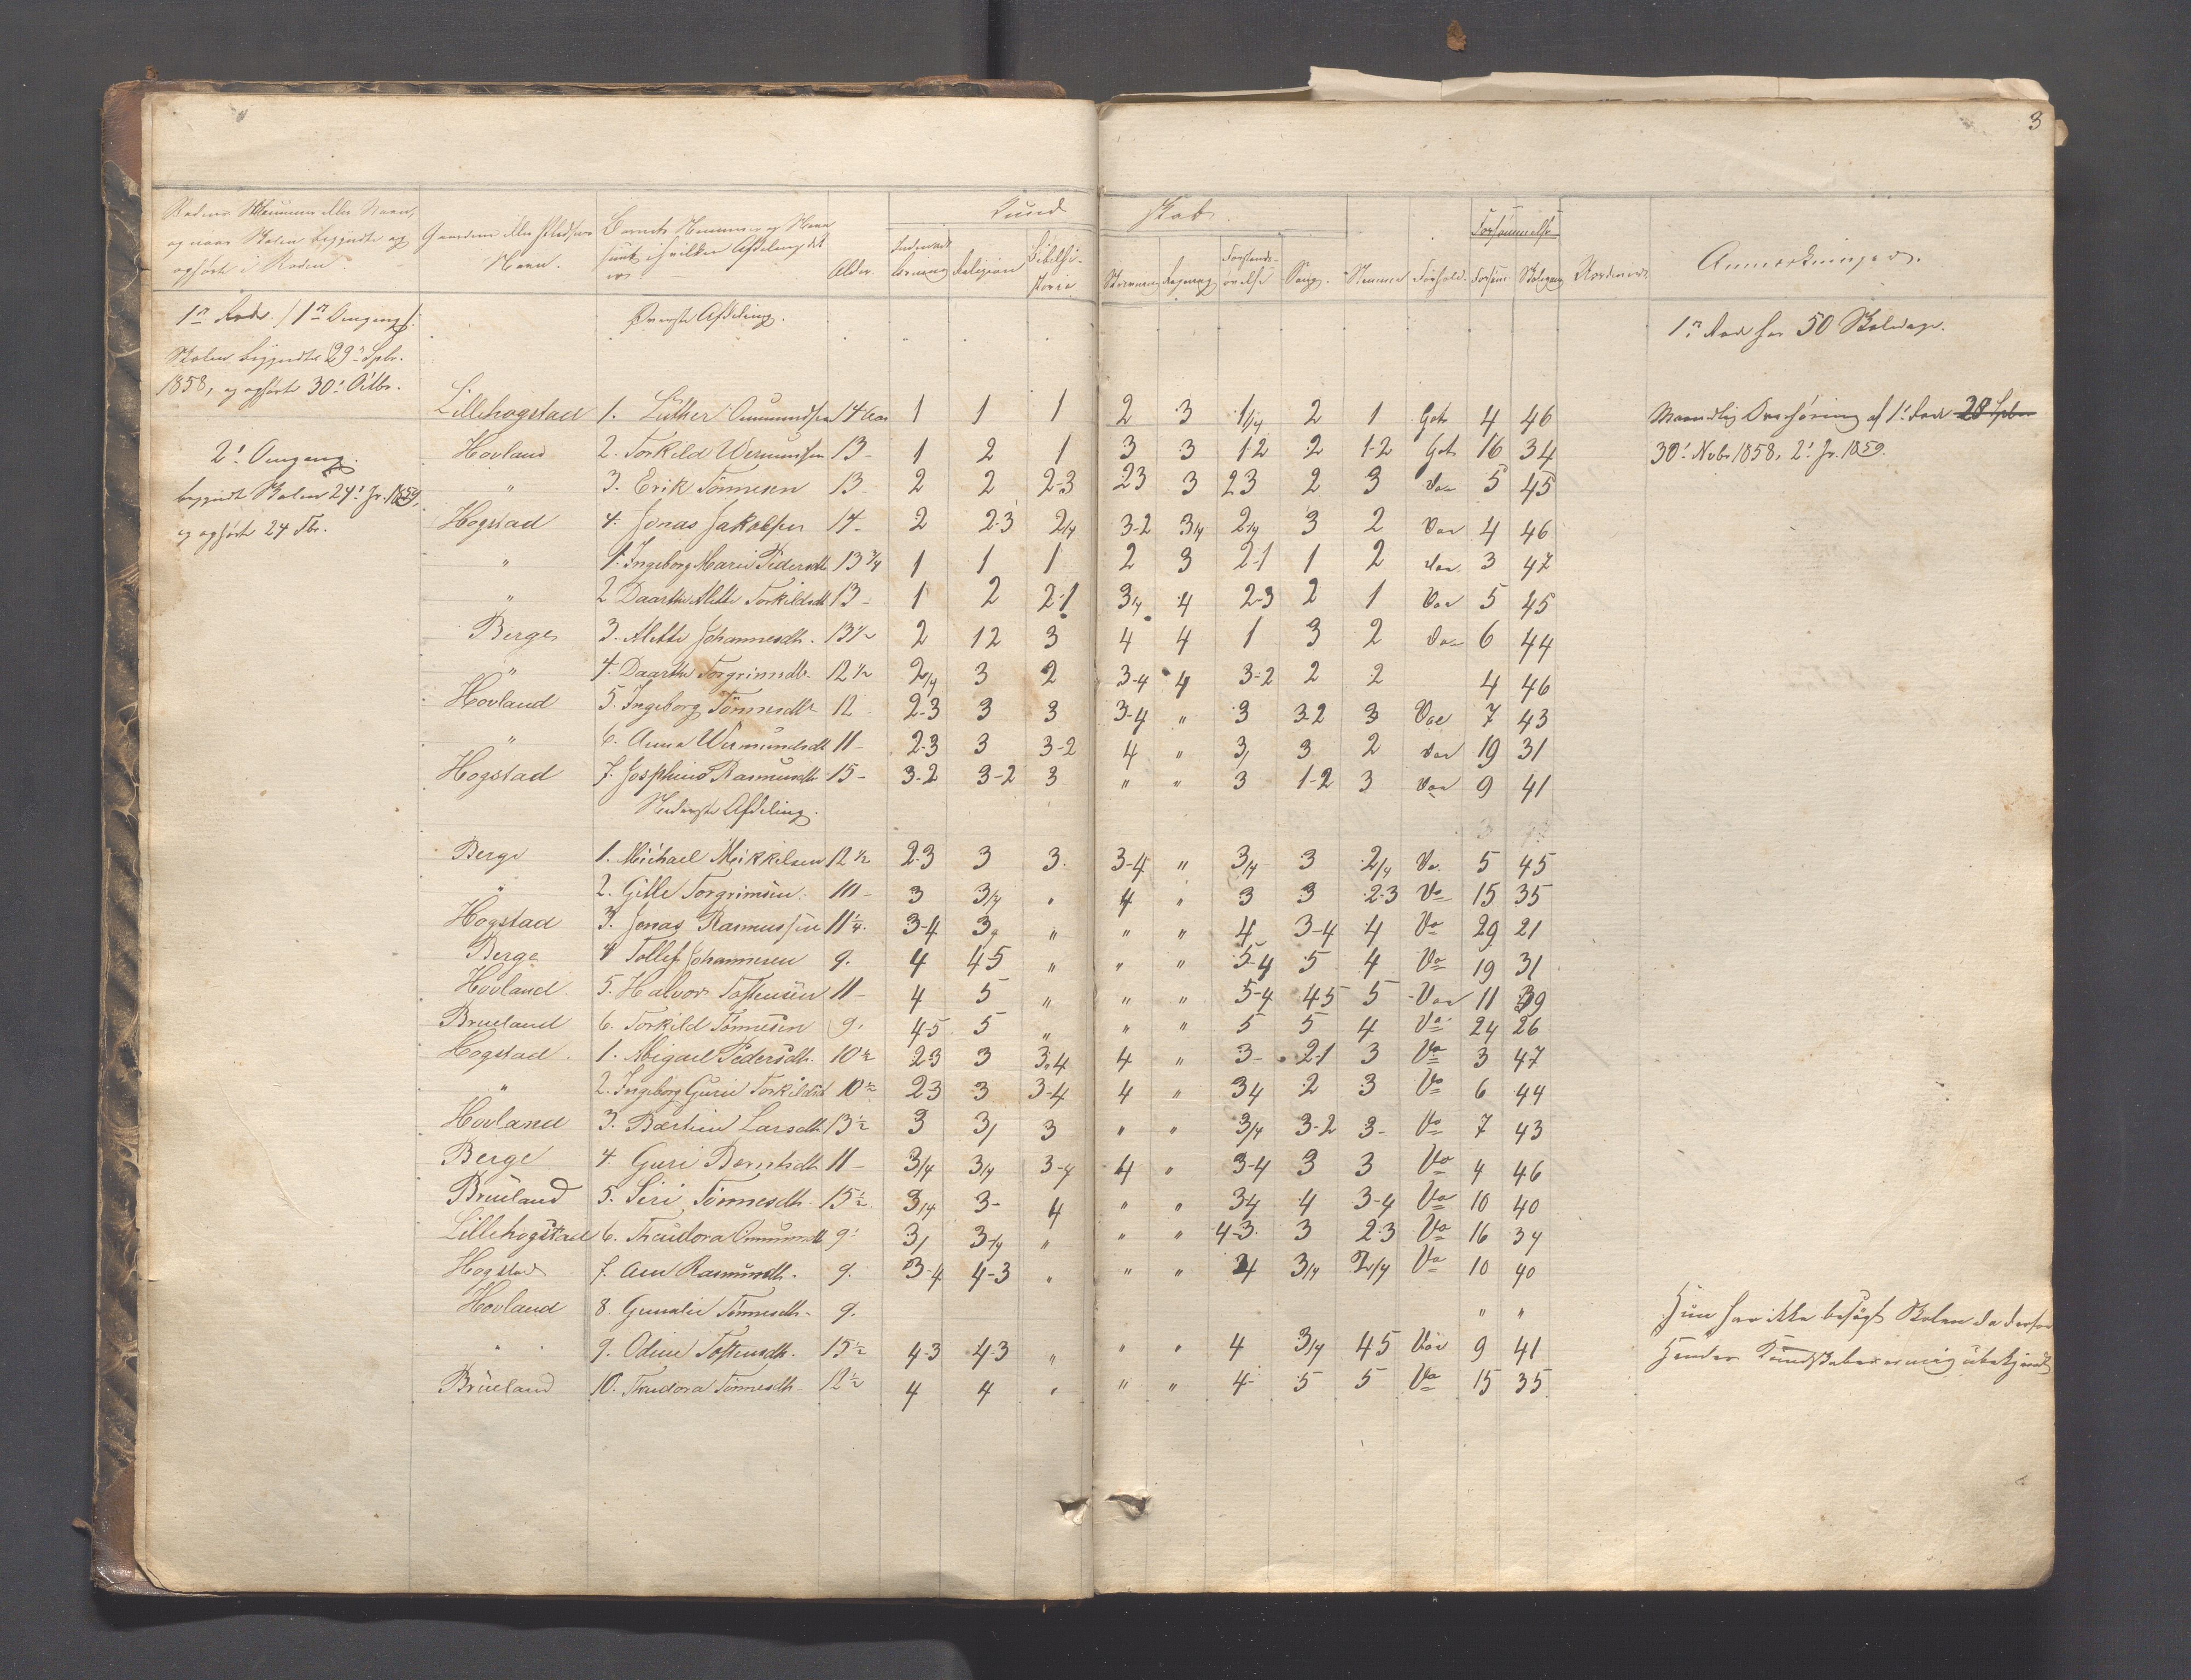 3
Rodens Nummer eller Navn, og naar Skolen begyndte og ophørte i Roden.
Gaardens eller Pladsens Navn.
Barnets Nummer og Navn samt i hvilken Afdeling det er
Alder.
Kundskab.
Indenadslæsning
Religion
Bibelhistorie
Skrivning
Regning
Forstandsøvelse
Sang.
Stemme
Forhold.
Forsømmelse
Forsømt
Skolegang
Anmerkninger.
1ste Rode. / 1ste Omgang /.
Øverste Afdeling.
1ste Rode har 50 Skoledage.
Skolen begyndte 29de Spbr.
1858, og ophørte 30te Octbr.
Lillehogstad 1. Luther Omundsen 14 Aar 1 1 1 2 3 1/4 2 1 Godt 4 46 Maanedlig Overhøring af 1ste Rode 28 Spbr
2d Omgang. Hovland 2. Torkild Wermundsen 13 - 1 2 1 3 3 1-2 2 1-2 Godt 16 34 30te Nvbr 1858. 2d Jr. 1859.
begyndte Skolen 24de Jr. 1859, " 3. Erik Tönnesen 13 - 2 2 2-3 23 3 23 2 3 do 5 45
og ophørte 24 Fbr. Hogstad 4. Jonas Jakobsen 14 - 2 2-3 2/4 3-2 3/4 2/4 3 2 do 4 46
" 1. Ingeborg Marie Pedersdtr 13 3/4 1 1 1 2 3 2-1 1 2 do 3 47
" 2 Daarthe Alette Torkildsdtr 13 - 1 2 2-1 3/4 4 2-3 2 1 do 5 45
Berge 3. Alette Johannesdtr. 13 1/2 2 12 3 4 4 1 3 2 do 6 44
" 4. Daarthe Torgrimsdtr. 12 1/2 2/4 3 2 3-4 4 3-2 2 2 4 46
Hovland 5. Ingeborg Tönnesdtr 12 2-3 3 3 3-4 " 3 32 3 do 7 43
" 6. Anna Wermundsdtr 11 - 2-3 3 3-2 4 " 3, 3 2 do 19 31
Hogstad 7. Josphine Rasmusdtr 15 - 3-2 3-2 3 " " 3 1-2 3 do 9 41
Nederste Afdeling.
Berge 1. Michael Mikkelsen 12 1/2 23 3 3. 3-4 " 3/4 3 2/4 do 5 45
" 2. Gitle Torgrimsen. 10 - 3 3/4 " 4 " 3 3 2-3 do 15 35
Hogstad 3. Jonas Rasmussen 11 1/4. 3-4 3/ " " " 4 3-4 4 do 29 21
Berge 4 Tollef Johannesen 9. 4 45 " " " 5-4 5 4 do 19 31
Hovland 5. Halvor Tostensen 11 - 4 5 " " " 5-4 45 5 do 11 39
Brueland 6. Torkild Tönnesen 9. 4-5 5 " " " 5 5 4 do 24 26
Hogstad. 1. Abigael Pedersdtr. 10 1/2 23 3 3-4 4 " 3- 2-1 3 do 3 47
" 2. Ingeborg Gurie Torkildsdtr 10 1/2 23 3 3-4 4 " 34 2 3 do 6 44
Hovland 3. Bærtine Larsdtr 13 1/2 3 3/ 3 " " 3/4 3-2 3- do 7 43
Berge 4. Guri Berntsdtr 11 - 3/4 3/4 3-4 4 " 3-4 3 3 do 4 46
Brueland 5. Siri Tönnesdtr. 15 1/2 3/4 3- 4 " " 34 4 3-4 do 10 40
Lillehogstad 6. Theudora Omundsdtr 9. 3/ 3-4 " " " 4-3. 3 2-3 do 16 34
Hogstad 7. Asn Rasmusdtr. 9. 3-4 4-3 " " " 4 3/4 2/4 do 10 40
Hovland 8. Gunalie Tönnesdtr. 9. " " Hun har ikke besøgt Skolen da derfor
" 9. Odine Tostensdtr. 15 1/2 4-3 4-3 " " " 4 3/4 45 do 9 41 hendes Kundskaber er mig ubekjendt
Brueland 10. Theudora Tönnesdtr. 12 1/2 4 4 " " " 4- 5 5 do 15 35